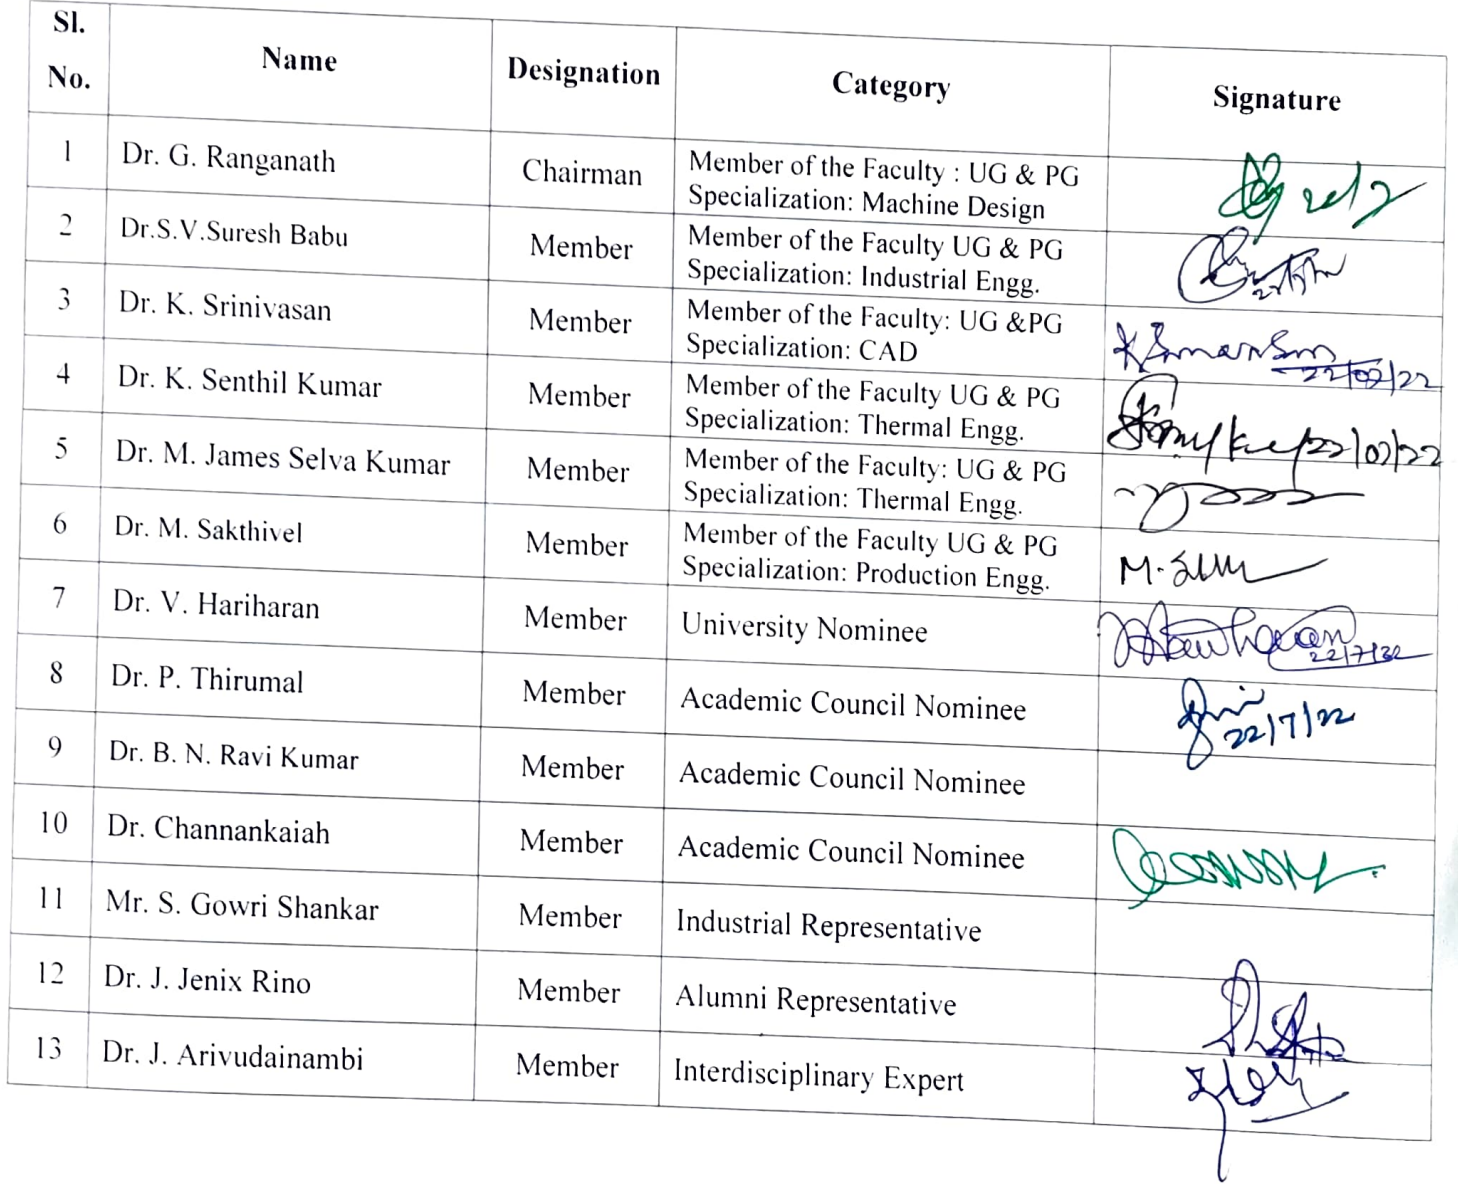 Sl.
No.
Name
Designation
Category
Signature
1
Dr. G. Ranganath
Chairman
Member of the Faculty : UG & PG
Specialization: Machine Design
2
Dr.S.V.Suresh Babu
Member
Member of the Faculty UG & PG
Specialization: Industrial Engg.
3
Dr. K. Srinivasan
Member
Member of the Faculty: UG &PG
Specialization: CAD
22/07/22
4
Dr. K. Senthil Kumar
Member
Member of the Faculty UG & PG
Specialization: Thermal Engg.
22/07/22
5
Dr. M. James Selva Kumar
Member
Member of the Faculty: UG & PG
Specialization: Thermal Engg.
6
Dr. M. Sakthivel
Member
Member of the Faculty UG & PG
Specialization: Production Engg.
M.
7
Dr. V. Hariharan
Member
University Nominee
8
Dr. P. Thirumal
Member
Academic Council Nominee
22/7/22
9
Dr. B. N. Ravi Kumar
Member
Academic Council Nominee
10
Dr. Channankaiah
Member
Academic Council Nominee
11
Mr. S. Gowri Shankar
Member
Industrial Representative
12
Dr. J. Jenix Rino
Member
Alumni Representative
13
Dr. J. Arivudainambi
Member
Interdisciplinary Expert